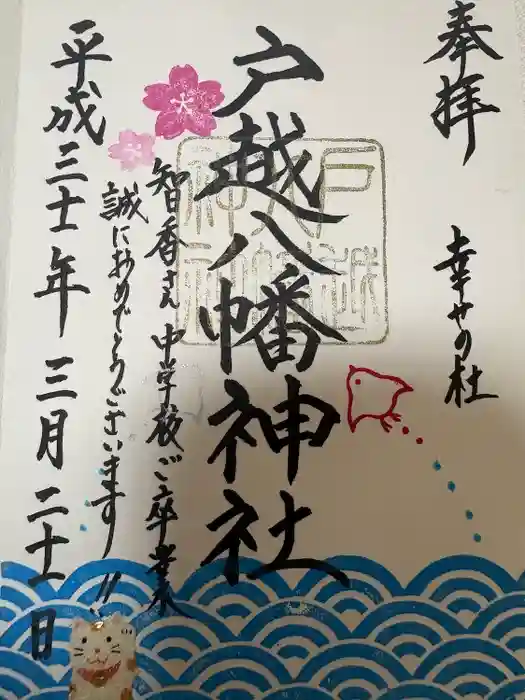 奉拝
幸せの杜
戸越八幡神社
戸越
八幡
神社
智香さん 中学校ご卒業
誠におめでとうございます!!
平成三十一年 三月 二十一日